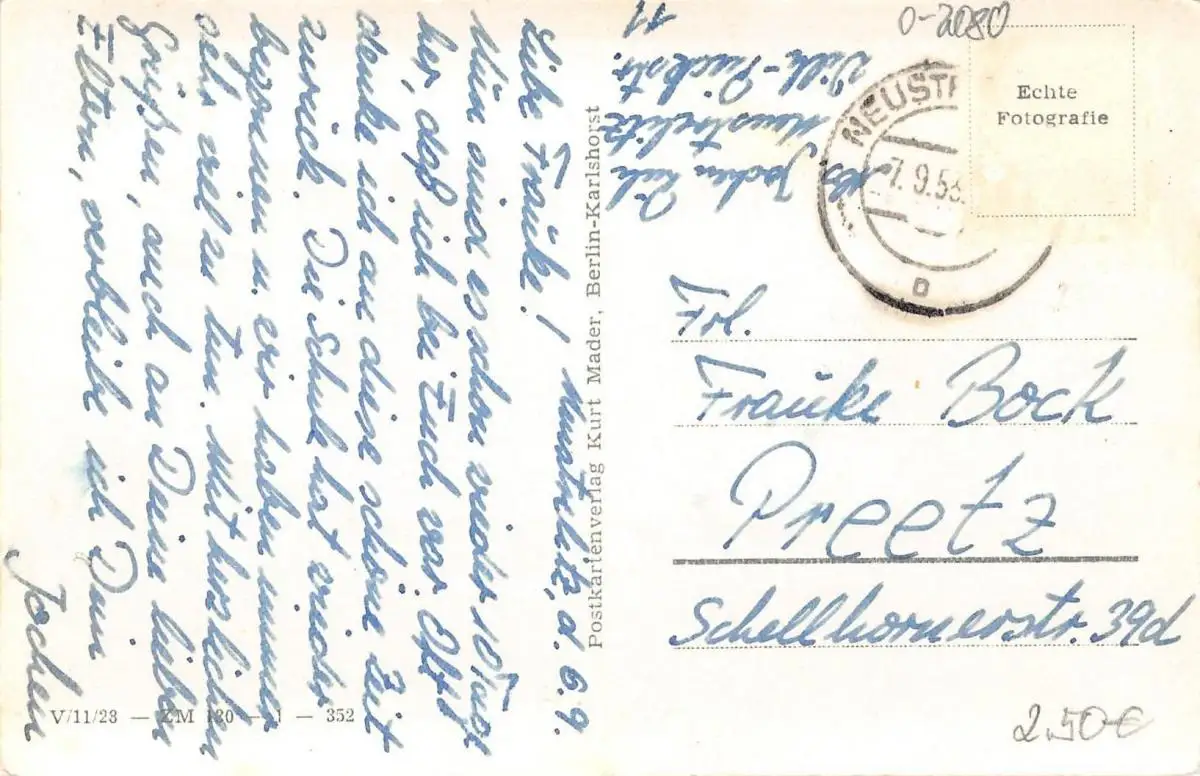 Liebe Frauke! Neustrelitz, d. 6.9.
Nun sind es schon wieder 10 Tage
her, daß ich bei Euch war. Oft
denke ich an diese schöne Zeit
zurück. Die Schule hat wieder
begonnen u. wir haben immer
sehr viel zu tun. Mit herzlichen
Grüßen, auch an Deine lieben
Eltern, verbleibe ich Dein
Jochen
V/11/23 — ZM 130 — 1 — 352
Postkartenverlag Kurt Mader, Berlin-Karlshorst
Abs. Jochen
Neustrelitz
Wilh.-Pieckstr.
11
0-2080
NEUST
7.9.53
b
Echte
Fotografie
Frl.
Frauke Bock
Preetz
Schellhornerstr. 39d
2.50€